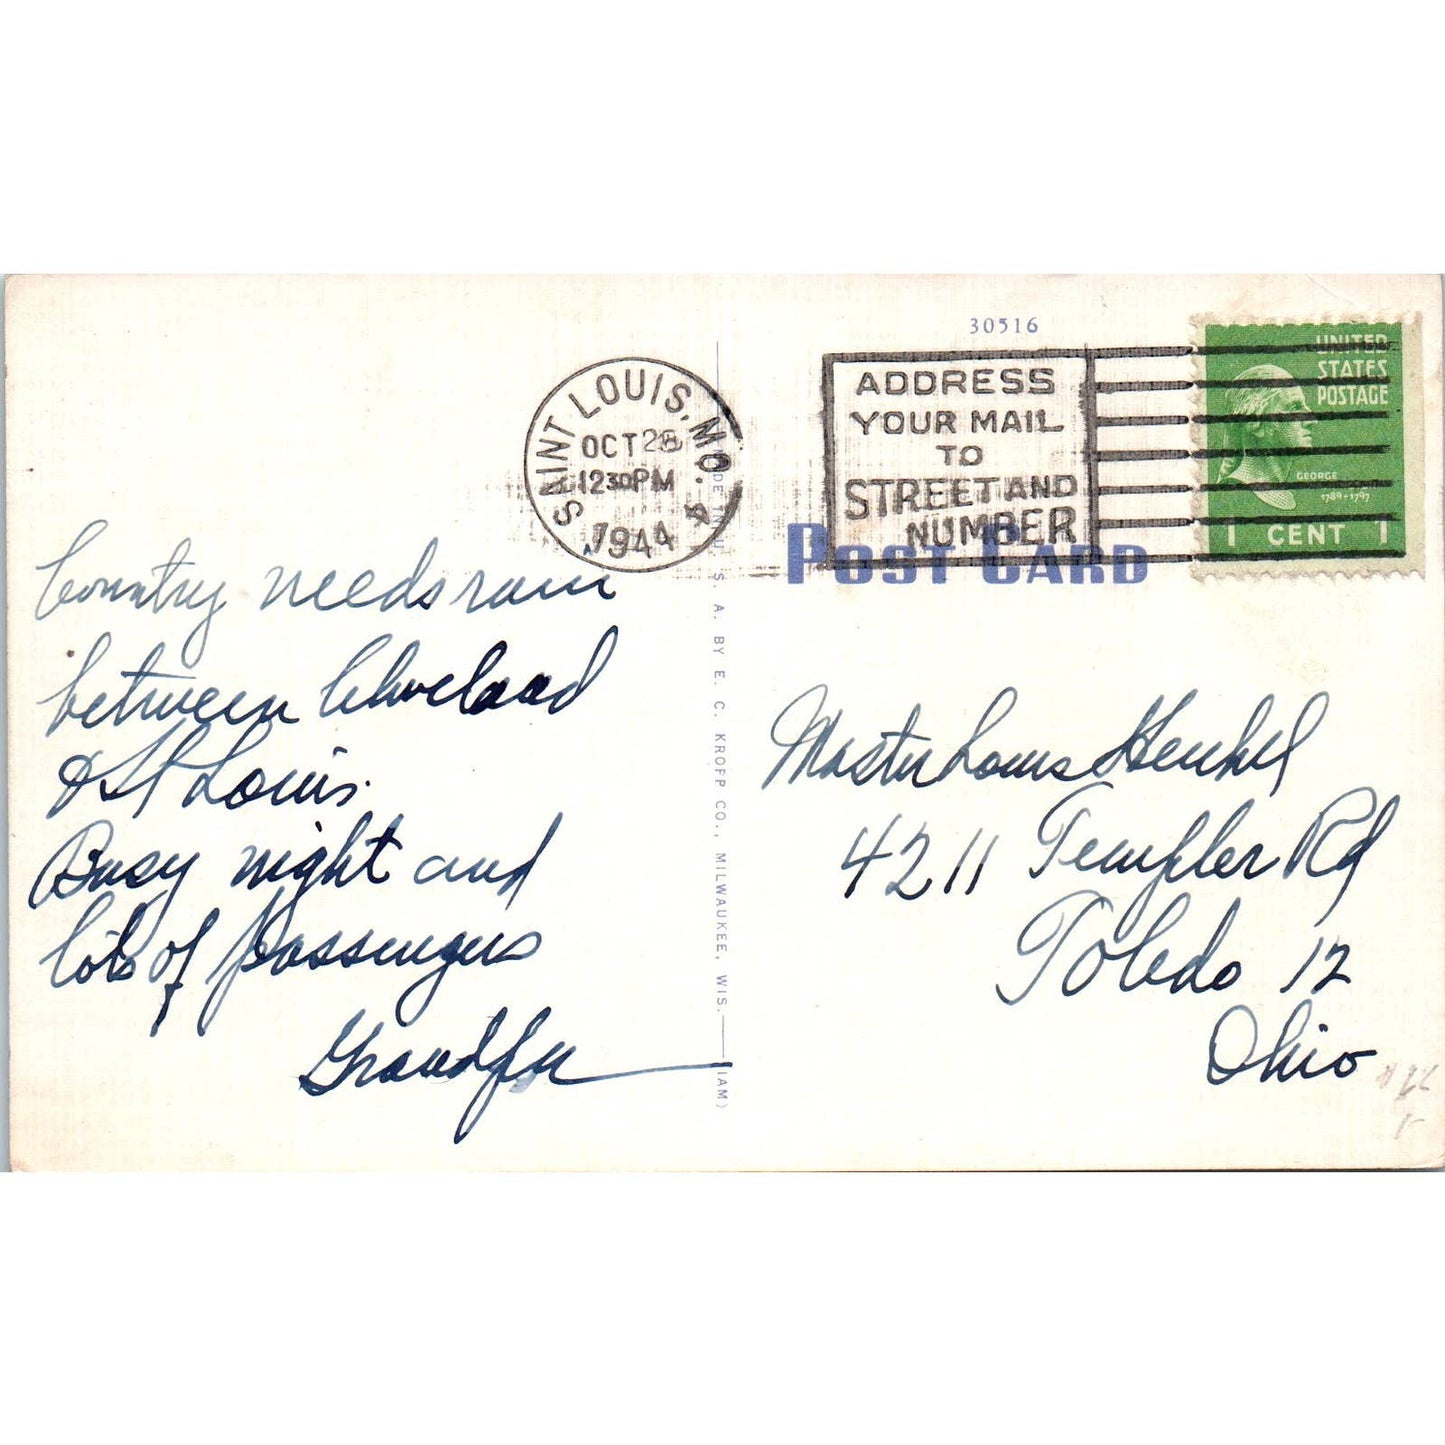 30516
SAINT LOUIS, MO. 4
OCT 28
1230 PM
1944
ADDRESS
YOUR MAIL
TO
STREET AND
NUMBER
UNITED
STATES
POSTAGE
GEORGE
1789-1797
1 CENT 1
POST CARD
Country needs rain
between Cleveland
& St Louis.
Busy night and
lots of passengers
MADE IN U. S. A. BY E. C. KROPP CO., MILWAUKEE, WIS.
Master Louis Henkel
4211 Templer Rd
Toledo 12
Ohio